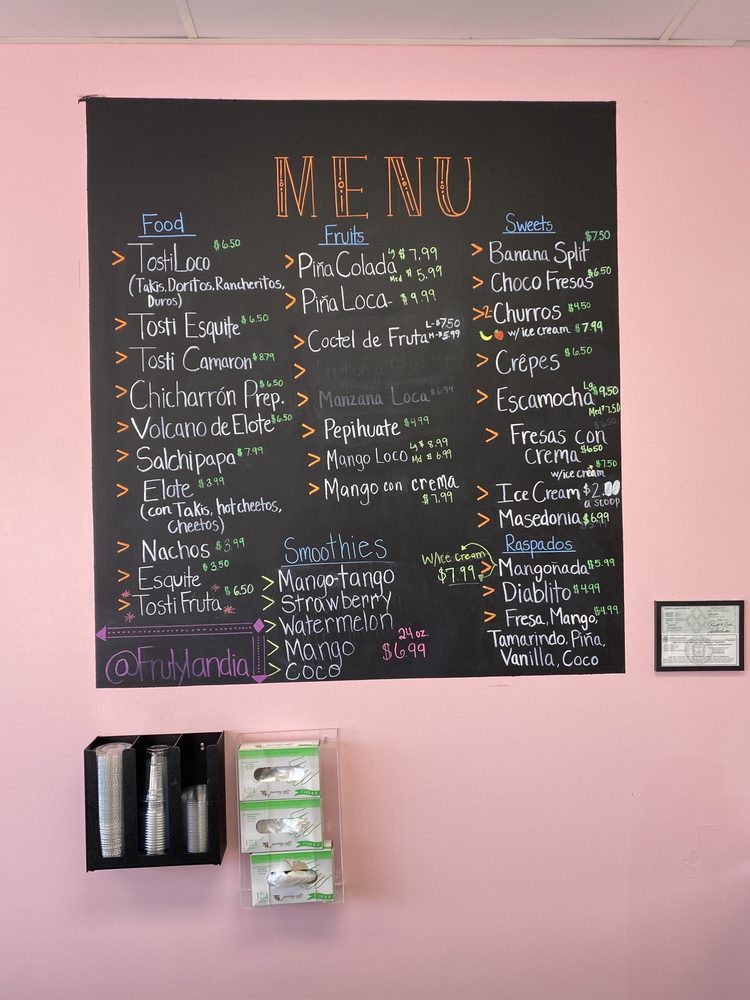 MENU
Food
> TostiLoco $6.50
(Takis, Doritos, Rancheritos,
Duros)
> Tosti Esquite $6.50
> Tosti Camaron $8.79
> Chicharrón Prep. $6.50
> Volcano de Elote $6.50
> Salchipapa $7.99
> Elote $3.99
(con Takis, hot cheetos,
Cheetos)
> Nachos $3.99
> Esquite $3.50
> Tosti Fruta $6.50
@Frutylandia
Fruits
> Piña Colada Lg $7.99
Med $5.99
> Piña Loca - $9.99
> Coctel de Fruta L-$7.50
M-$5.99
>
> Manzana Loca $6.99
> Pepihuate $4.99
> Mango Loco Lg $8.99
Md $6.99
> Mango con crema
$7.99
Smoothies
> Mango-tango
> Strawberry
> Watermelon
> Mango
> Coco
24 oz.
$6.99
Sweets
> Banana Split $7.50
> Choco Fresas $6.50
> 2 Churros $4.50
w/ice cream $7.99
> Crêpes $6.50
> Escamocha Lg $9.50
Med $7.50
> Fresas con
crema $6.50
w/ice cream $7.50
> Ice Cream $2.00
a scoop
> Masedonia $6.99
Raspados
W/Ice cream
$7.99
> Mangoñada $5.99
> Diablito $4.99
> Fresa, Mango, $4.99
Tamarindo, Piña,
Vanilla, Coco